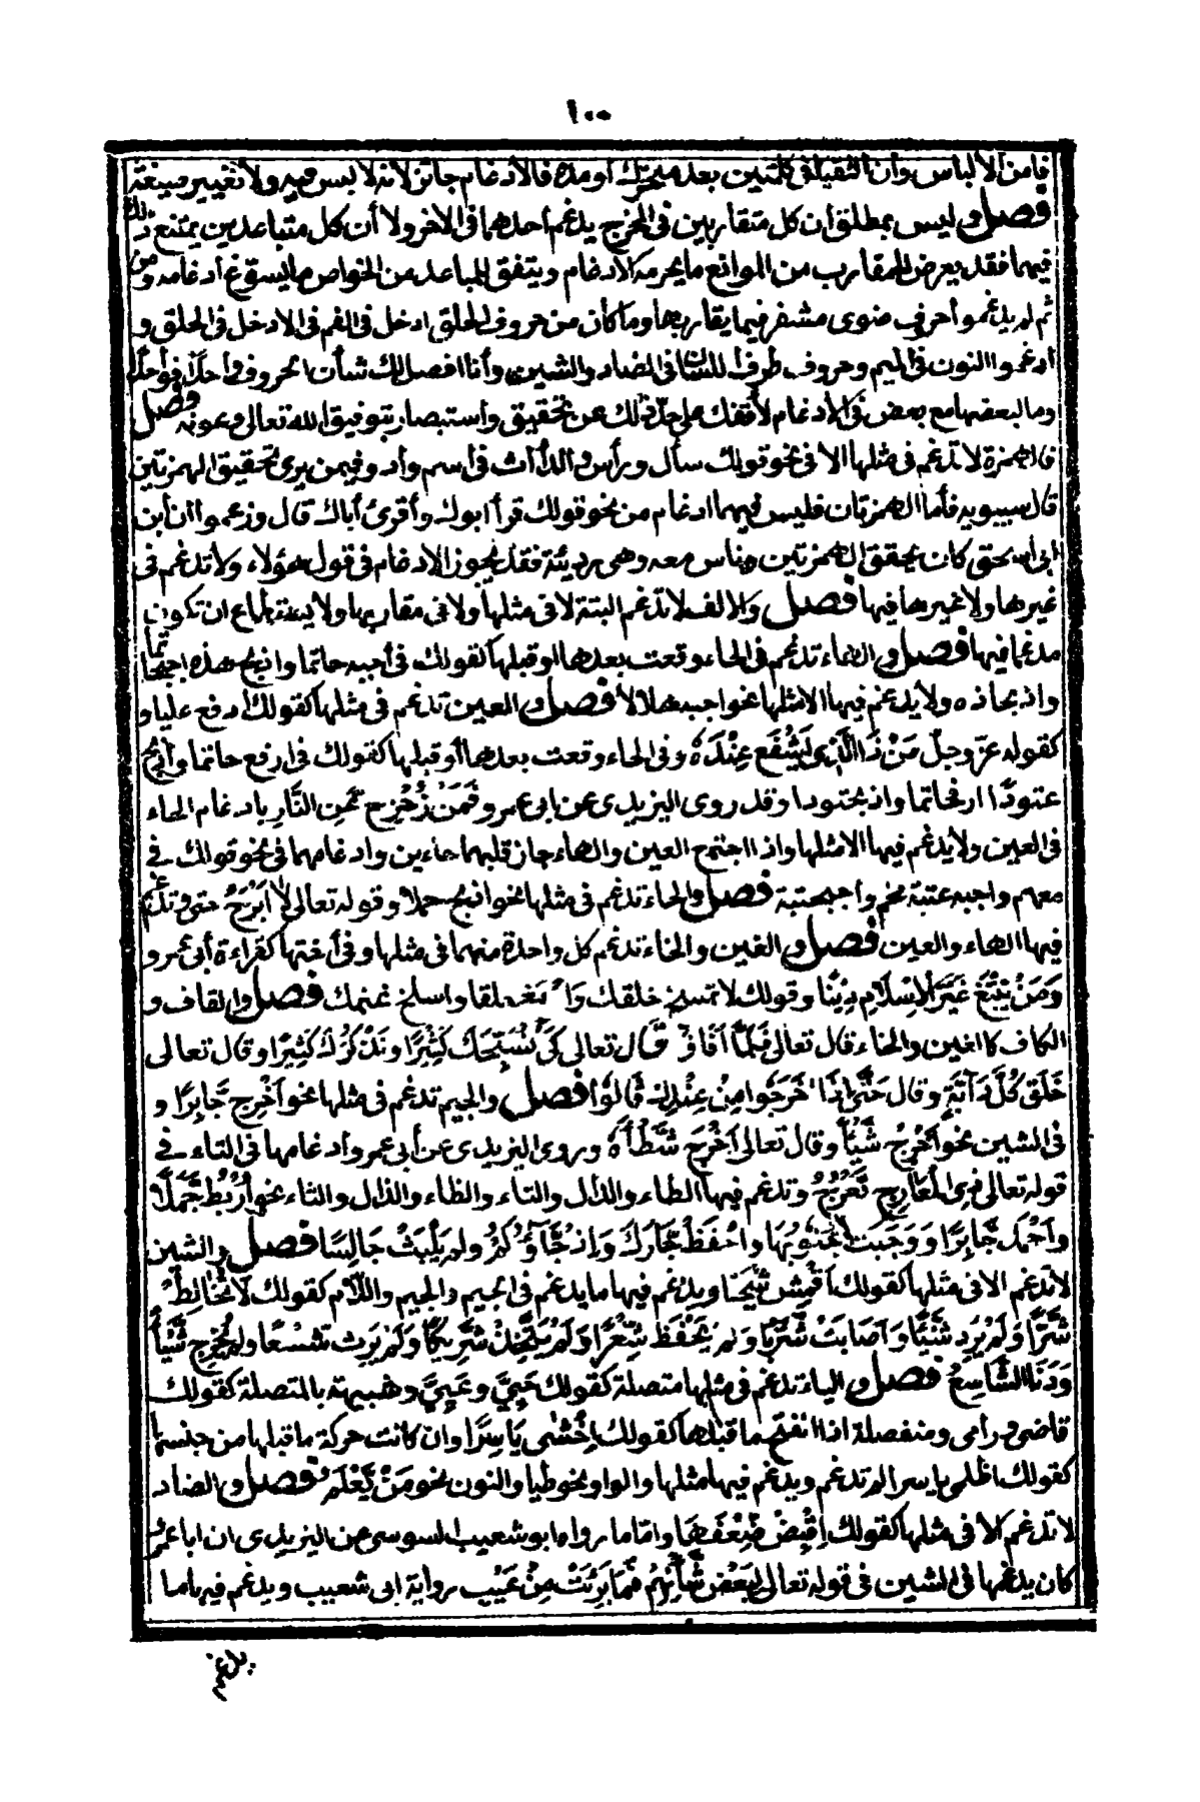 ١٠٠
فأمن الألباس وأن التقيا في كلمتين بعد متحرك أو مدة فالأدغام جائز لانه لا لبس فيه ولا تغيير صيغة
فصل و ليس بمطلق أن كل متقاربين في المخرج يدغم أحدهما في الاخر ولا أن كل متباعدين يمتنع ذلك
فيهما فقد يعرض للمقارب من الموانع ما يحرمه الادغام ويتفق للمباعد من الخواص ما يسوّغ أدغامه ومن
ثم لم يدغموا أحرف ضوى مشفر فيما يقاربها وما كان من حروف الحلق ادخل في الفم في الادخل في الحلق و
ادغموا النون في الميم وحروف طرف اللسان في الضاد والشين وأنا افصل لك شأن الحروف واحدًا فواحدًا
وما لبعضها مع بعض في الادغام لأقفك على حدّ ذلك عن تحقيق واستبصار بتوفيق الله تعالى وعونه فصل
فالهمزة لا تدغم في مثلها الا في نحو قولك سأل ورأس والدأاث في أسم واد وفيمن يرى تحقيق الهمزتين
قال سيبويه فأما الهمزتان فليس فيهما ادغام من نحو قولك قرأ ابوك وأقرئ أباك قال وزعموا ان أبن
ابي اسحق كان يحقق الهمزتين وناس معه وهى رديئة فقد يجوز الادغام في قول هؤلاء ولا تدغم في
غيرها ولا غيرها فيها فصل والالف لا تدغم البتة لا في مثلها ولا في مقاربها ولا يستطاع ان تكون
مدغما فيها فصل و الهاء تدغم في الحاء وقعت بعدها او قبلها كقولك في أجبه حاتما واذبح هذه اجبحاتما
واذبحاذه ولا يدغم فيها الا مثلها نحو اجبه هلالا فصل و العين تدغم في مثلها كقولك ارفع عليا و
كقوله عزّ وجلّ مَنْ ذَا الَّذِى يَشْفَع عِنْدَهُ وفي الحاء وقعت بعدها أو قبلها كقولك في ارفع حاتما واذبح
عتودًا ارفحاتما واذبحتودا وقد روى اليزيدى عن ابى عمرو فَمَنْ زُحْزِح عَّنِ النَّارِ بادغام الحاء
في العين ولا يدغم فيها الا مثلها واذا اجتمع العين والهاء جاز قلبهما حاءين وادغامهما في نحو قولك في
معهم واجبه عتبة محم واجبحتبة فصل والحاء تدغم في مثلها نحو اذبح حملا وقوله تعالى لا اَبْرَحُ حتى وتدغم
فيها الهاء والعين فصل و الغين والخاء تدغم كل واحدة منهما في مثلها وفي أختها كقراءة أبى عمرو
وَمَنْ يَبْتَغ غَيْرَ الْاِسْلَامِ دِيْنًا وقولك لا تمسخ خلقك وادمغ خلقا واسلخ غنمك فصل والقاف و
الكاف كالغين والخاء قال تعالى فَلَمَّا اَفَاق قَّال تعالى كَىْ نُسَبِّحَك كَثِيْرًا ونَذْكُرَك كَثِيْرًا وقال تعالى
خَلَق كُلَّ دَآبَّةٍ وقال حَتّٰى اِذَا خَرَجُوا مِنْ عِنْدِك قَّالُوْا فصل والجيم تدغم في مثلها نحو اَخْرِج جَابِرًا و
في الشين نحو اَخْرِجْ شَّيْئًا وقال تعالى اَخْرَج شَّطْأَهُ وروى اليزيدى عن أبي عمرو ادغامها في التاء في
قوله تعالى ذِى الْمَعَارِجِ تَّعْرُجُ وتدغم فيها الطاء والدال والتاء والظاء والذال والثاء نحو اُرْبُط جَّمَلًا
واَحْمَد جَّابِرًا وَوَجَبَت جُّنُوبُهَا واحْفَظْ جَّارَكَ وَاِذ جَّآؤُكُمْ ولم يَلْبَثْ جَالِسًا فصل والشين
لا تدغم الا في مثلها كقولك اَقْمِش شِّيْحًا ويدغم فيها ما يدغم في الجيم والجيم واللام كقولك لا تُخَالِطْ
شَّرًّا وَلَمْ يُرِد شَّيْئًا وَاَصَابَتْ شَّرْبًا وَلم يَحْفَظ شِّعْرًا وَلَمْ يَتَّخِذْ شَّرِيكًا وَلَمْ يَرِث شّسْعًا ولم يُخْرِج شَّيْئًا
وَدَنَا الشَّاسِعُ فصل و الياء تدغم في مثلها متصلة كقولك حَيَّ وعَيَّ وشبيهة بالمتصلة كقولك
قاضىّ ورامىّ ومنفصلة اذا انفتح ما قبلها كقولك اِخْشَى يَاسِرًا وان كانت حركة ما قبلها من جنسها
كقولك اظلمى ياسرا لم تدغم ويدغم فيها مثلها والواو نحو طيا والنون نحو مَنْ يَّعْلَمُ فصل والضاد
لا تدغم الا في مثلها كقولك اِقْبِضْ ضِّعْفَهَا واما ما رواه ابو شعيب السوسى عن اليزيدى ان ابا عمرو
كان يدغمها في الشين في قوله تعالى لِبَعْض شَّأْنِهِمْ فَمَا بَرِئَتْ مِنْ عَيْبٍ رواية ابى شعيب ويدغم فيها ما
يدغم